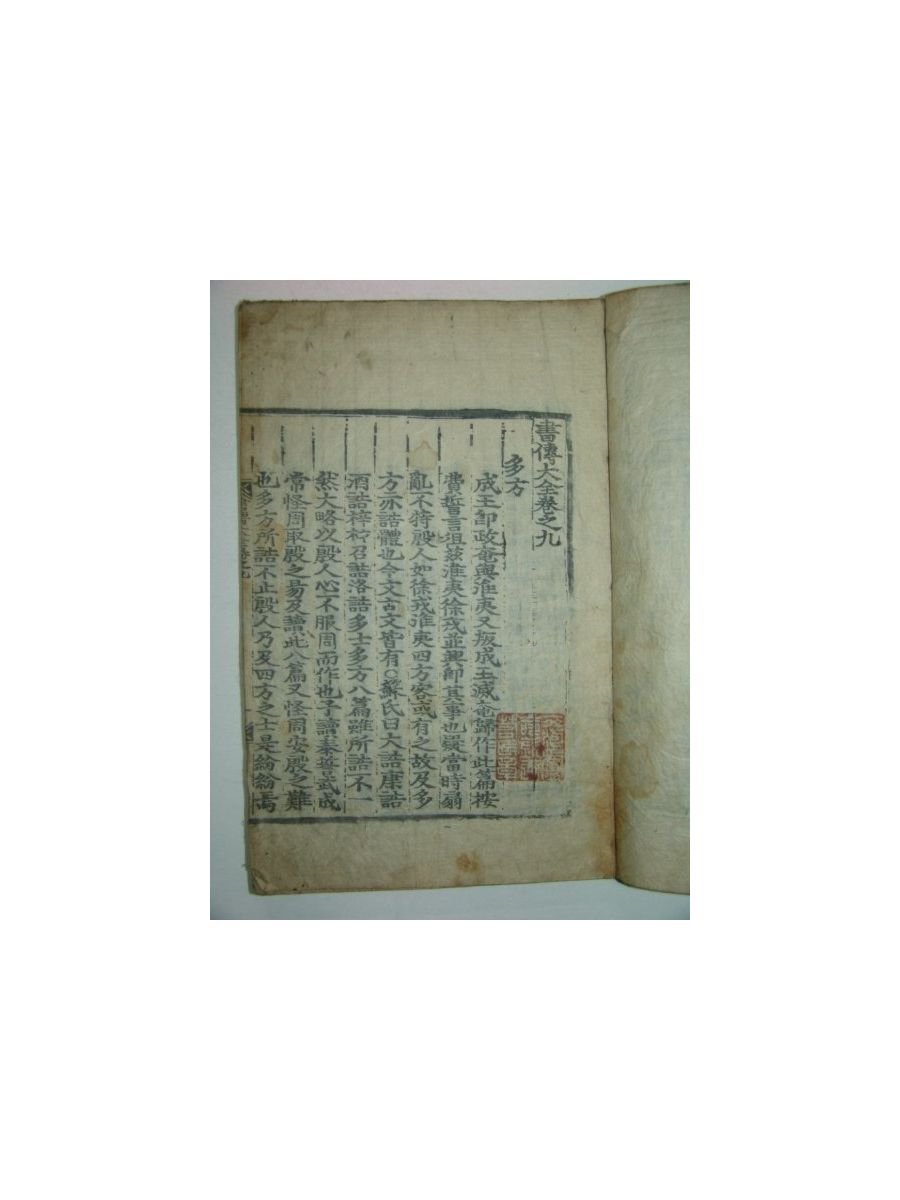 書傳大全卷之九
多方
成王卽政奄與淮夷又叛成王滅奄歸作此篇按
費誓言徂茲淮夷徐戎並興卽其事也疑當時扇
亂不特殷人如徐戎淮夷四方容或有之故及多
方亦誥體也今文古文皆有○蘇氏曰大誥康誥
酒誥梓材召誥洛誥多士多方八篇雖所誥不一
然大略以殷人心不服周而作也予讀泰誓武成
常怪周取殷之易及讀此八篇又怪周安殷之難
也多方所誥不止殷人乃及四方之士是紛紛焉